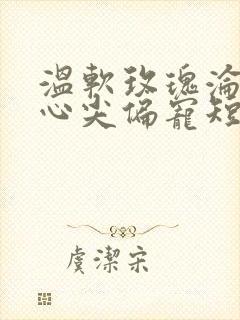 温軟玫瑰淪
心尖偏寵短
虞潔宋